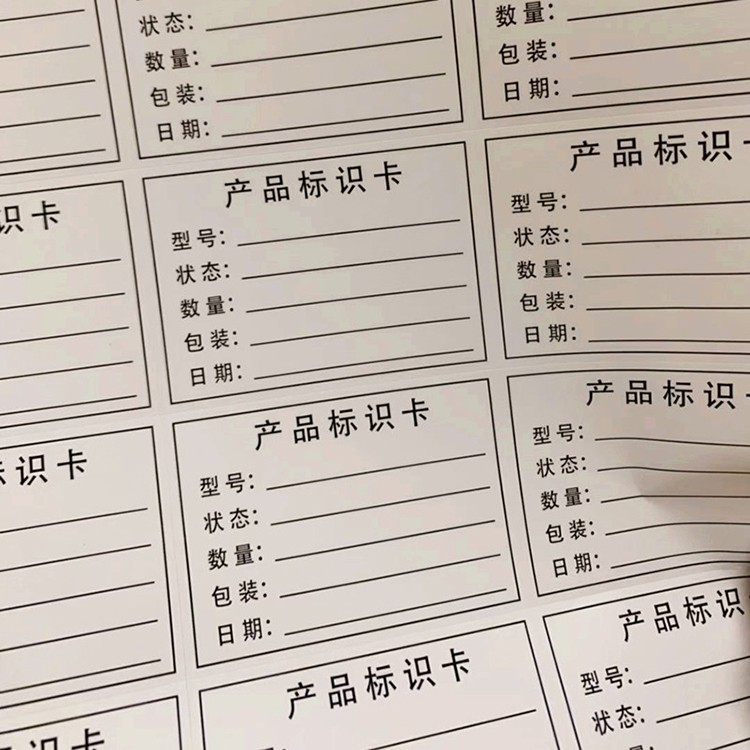 状态:
数量:
包装:
日期:
数量:
包装:
日期:
识卡
产品标识卡
型号:
状态:
数量:
包装:
日期:
产品标识
型号:
状态:
数量:
包装:
日期:
识卡
产品标识卡
型号:
状态:
数量:
包装:
日期:
产品标识
型号:
状态:
数量:
包装:
日期:
识卡
产品标识卡
产品标识
型号:
状态: